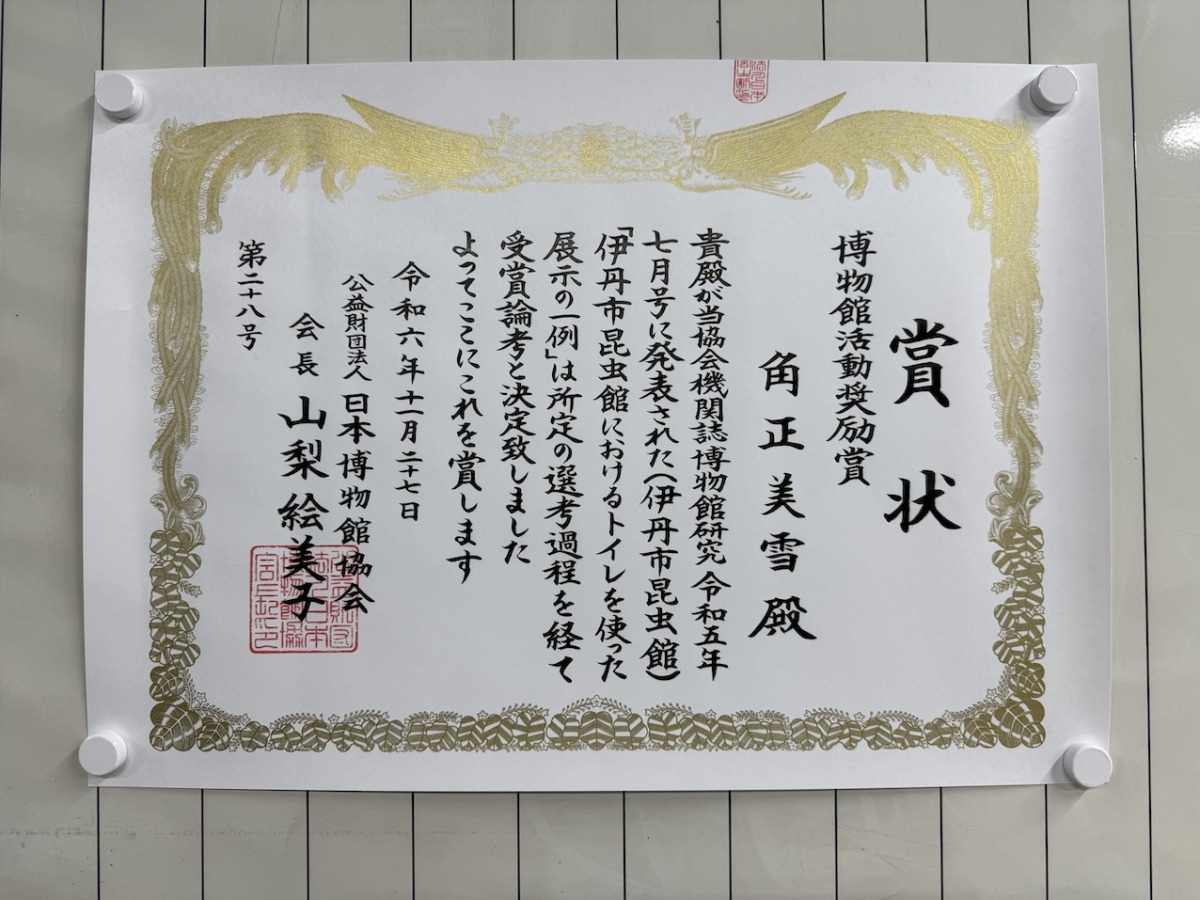 賞状
博物館活動奨励賞
角正美雪殿
貴殿が当協会機関誌博物館研究 令和五年
七月号に発表された(伊丹市昆虫館)
「伊丹市昆虫館におけるトイレを使った
展示の一例」は所定の選考過程を経て
受賞論考と決定致しました
よってここにこれを賞します
令和六年十一月二十七日
公益財団法人 日本博物館協会
会長 山梨絵美子
第二十八号